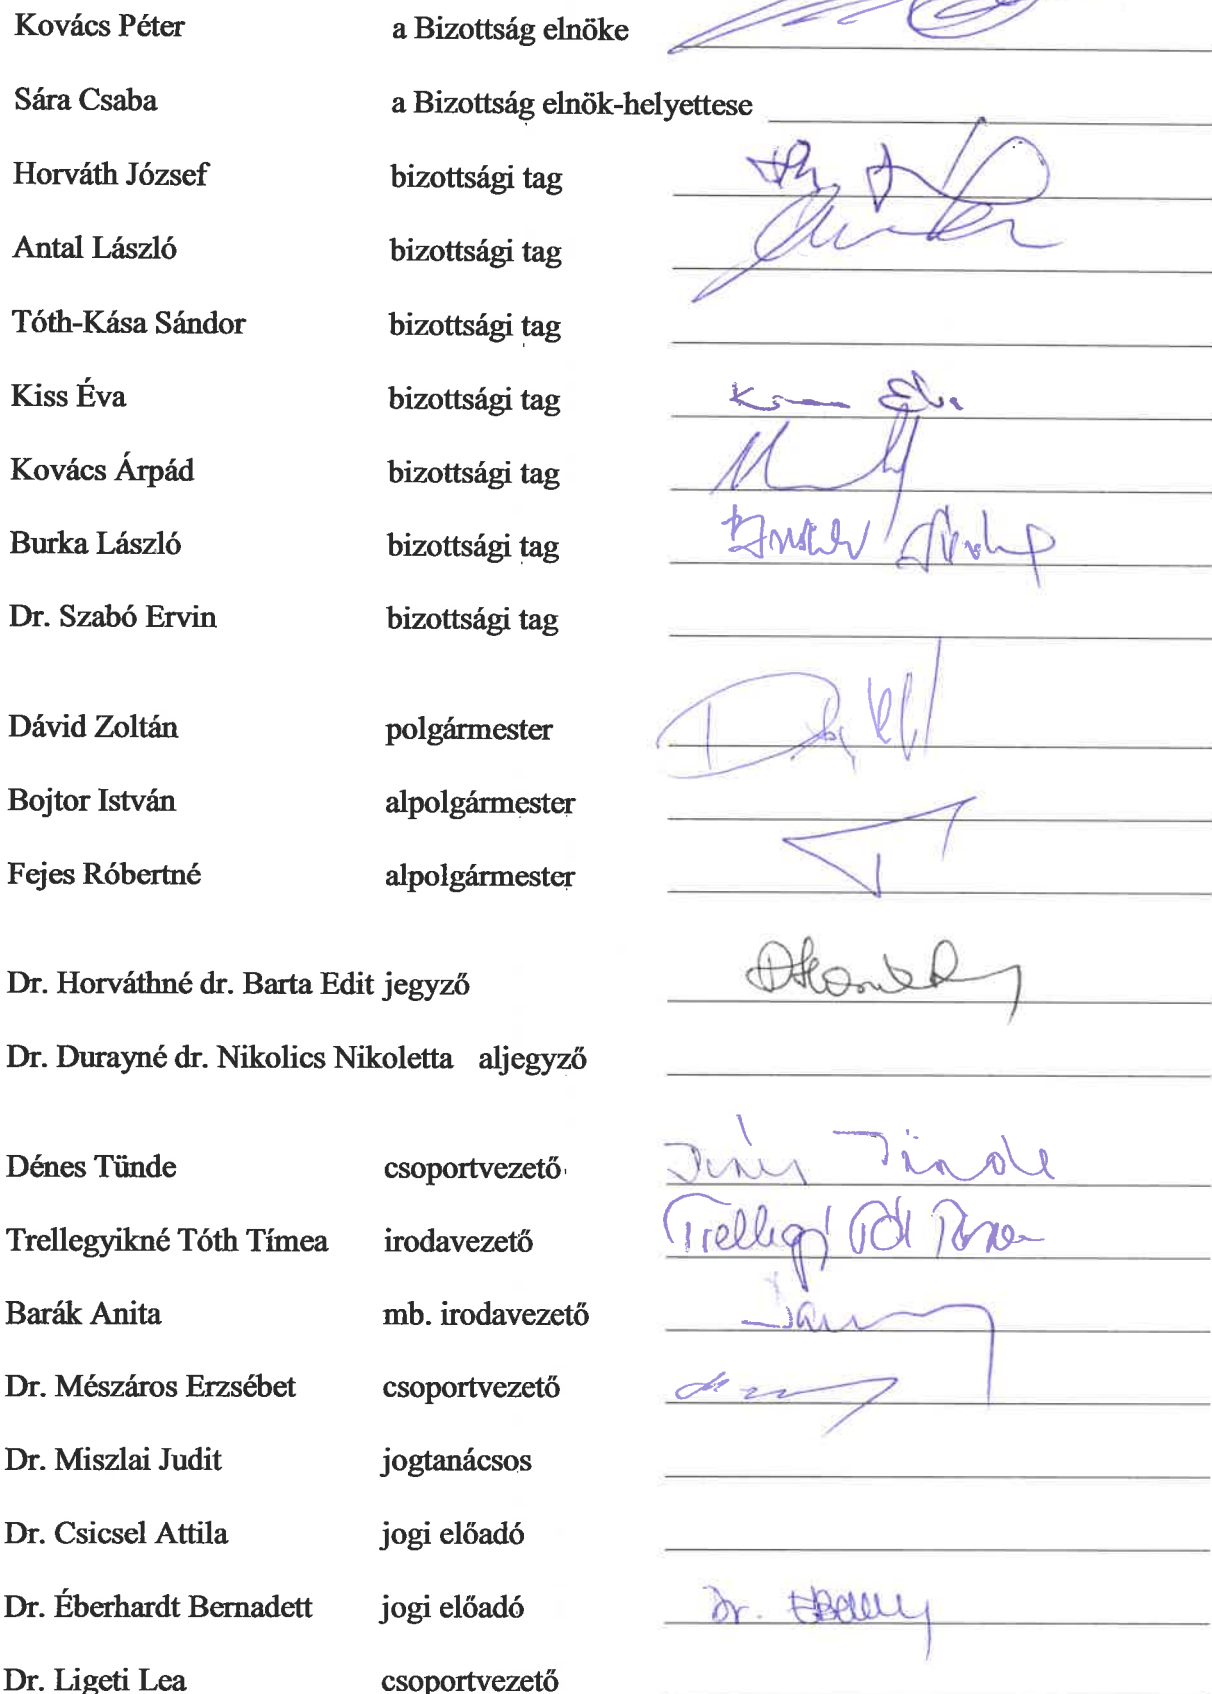 Kovács Péter a Bizottság elnöke
Sára Csaba a Bizottság elnök-helyettese
Horváth József bizottsági tag
Antal László bizottsági tag
Tóth-Kása Sándor bizottsági tag
Kiss Éva bizottsági tag
Kovács Árpád bizottsági tag
Burka László bizottsági tag
Dr. Szabó Ervin bizottsági tag
Dávid Zoltán polgármester
Bojtor István alpolgármester
Fejes Róbertné alpolgármester
Dr. Horváthné dr. Barta Edit jegyző
Dr. Durayné dr. Nikolics Nikoletta aljegyző
Dénes Tünde csoportvezető
Trellegyikné Tóth Tímea irodavezető
Barák Anita mb. irodavezető
Dr. Mészáros Erzsébet csoportvezető
Dr. Miszlai Judit jogtanácsos
Dr. Csicsel Attila jogi előadó
Dr. Éberhardt Bernadett jogi előadó Dr.
Dr. Ligeti Lea csoportvezető